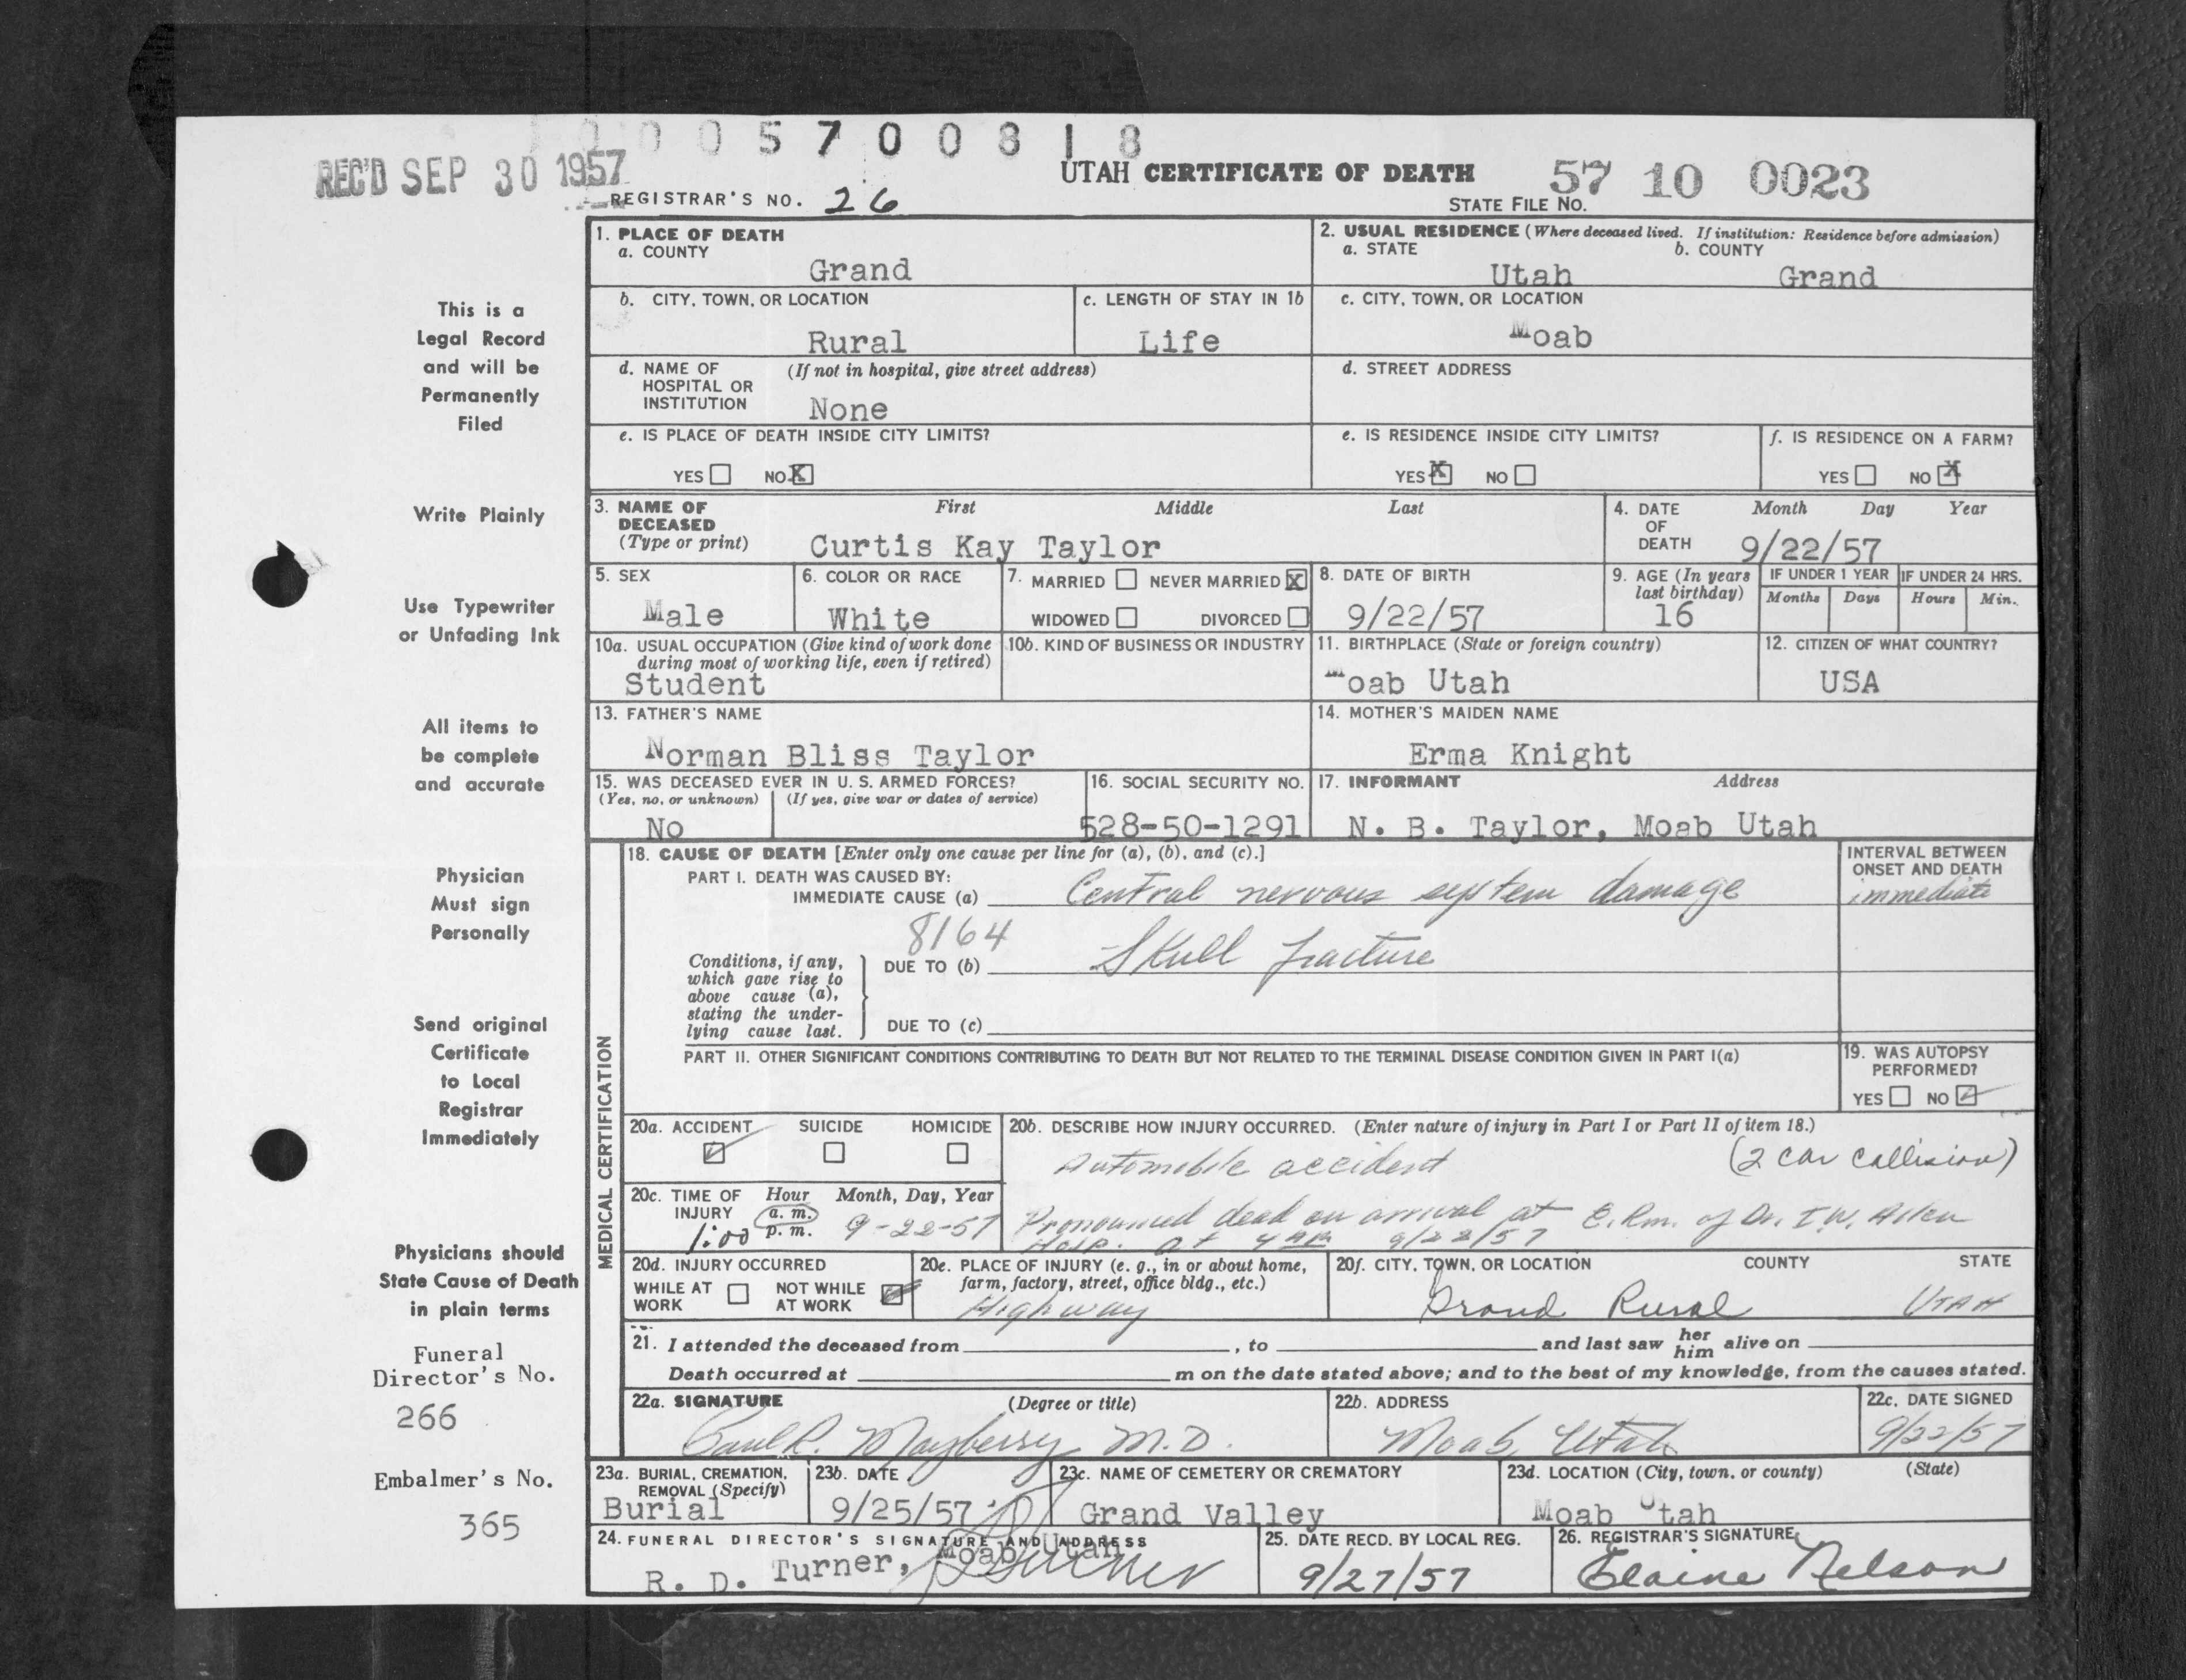 1 0 0 5 7 0 0 8 1 8
REC'D SEP 30 1957
UTAH CERTIFICATE OF DEATH
57 10 0023
REGISTRAR'S NO. 26
STATE FILE NO.
This is a
Legal Record
and will be
Permanently
Filed
Write Plainly
Use Typewriter
or Unfading Ink
All items to
be complete
and accurate
Physician
Must sign
Personally
Send original
Certificate
to Local
Registrar
Immediately
Physicians should
State Cause of Death
in plain terms
Funeral
Director's No.
266
Embalmer's No.
365
1. PLACE OF DEATH
a. COUNTY
Grand
2. USUAL RESIDENCE (Where deceased lived. If institution: Residence before admission)
a. STATE b. COUNTY
Utah Grand
b. CITY, TOWN, OR LOCATION
Rural
c. LENGTH OF STAY IN 1b
Life
c. CITY, TOWN, OR LOCATION
Moab
d. NAME OF (If not in hospital, give street address)
HOSPITAL OR
INSTITUTION None
d. STREET ADDRESS
e. IS PLACE OF DEATH INSIDE CITY LIMITS?
YES NO X
e. IS RESIDENCE INSIDE CITY LIMITS?
YES X NO
f. IS RESIDENCE ON A FARM?
YES NO X
3. NAME OF DECEASED (Type or print)
First Middle Last
Curtis Kay Taylor
4. DATE OF DEATH
Month Day Year
9/22/57
5. SEX
Male
6. COLOR OR RACE
White
7. MARRIED NEVER MARRIED X
WIDOWED DIVORCED
8. DATE OF BIRTH
9/22/57
9. AGE (In years last birthday)
16
IF UNDER 1 YEAR IF UNDER 24 HRS.
Months Days Hours Min.
10a. USUAL OCCUPATION (Give kind of work done
during most of working life, even if retired)
Student
10b. KIND OF BUSINESS OR INDUSTRY
11. BIRTHPLACE (State or foreign country)
Moab Utah
12. CITIZEN OF WHAT COUNTRY?
USA
13. FATHER'S NAME
Norman Bliss Taylor
14. MOTHER'S MAIDEN NAME
Erma Knight
15. WAS DECEASED EVER IN U. S. ARMED FORCES?
(Yes, no, or unknown) (If yes, give war or dates of service)
No
16. SOCIAL SECURITY NO.
528-50-1291
17. INFORMANT Address
N. B. Taylor, Moab Utah
MEDICAL CERTIFICATION
18. CAUSE OF DEATH [Enter only one cause per line for (a), (b), and (c).]
PART I. DEATH WAS CAUSED BY:
IMMEDIATE CAUSE (a) Central nervous system damage
INTERVAL BETWEEN
ONSET AND DEATH
immediate
8164
Conditions, if any,
which gave rise to
above cause (a),
stating the under-
lying cause last.
DUE TO (b) Skull fracture
DUE TO (c)
PART II. OTHER SIGNIFICANT CONDITIONS CONTRIBUTING TO DEATH BUT NOT RELATED TO THE TERMINAL DISEASE CONDITION GIVEN IN PART I(a)
19. WAS AUTOPSY
PERFORMED?
YES NO
20a. ACCIDENT SUICIDE HOMICIDE
20b. DESCRIBE HOW INJURY OCCURRED. (Enter nature of injury in Part I or Part II of item 18.)
Automobile accident (2 car collision)
20c. TIME OF INJURY
Hour Month, Day, Year
1:00 a. m. p. m. 9-22-57
Pronounced dead on arrival at E. Rm. of Dr. I. W. Allen
Hosp. at 4 AM 9/22/57
20d. INJURY OCCURRED
WHILE AT WORK NOT WHILE AT WORK
20e. PLACE OF INJURY (e. g., in or about home,
farm, factory, street, office bldg., etc.)
Highway
20f. CITY, TOWN, OR LOCATION COUNTY STATE
Grand Rural UTAH
21. I attended the deceased from , to and last saw her him alive on
Death occurred at m on the date stated above; and to the best of my knowledge, from the causes stated.
22a. SIGNATURE (Degree or title)
Paul R. Mayberry M.D.
22b. ADDRESS
Moab, Utah
22c. DATE SIGNED
9/22/57
23a. BURIAL, CREMATION,
REMOVAL (Specify)
Burial
23b. DATE
9/25/57
23c. NAME OF CEMETERY OR CREMATORY
Grand Valley
23d. LOCATION (City, town, or county) (State)
Moab Utah
24. FUNERAL DIRECTOR'S SIGNATURE AND ADDRESS
R. D. Turner, Moab Utah
25. DATE RECD. BY LOCAL REG.
9/27/57
26. REGISTRAR'S SIGNATURE
Elaine Nelson